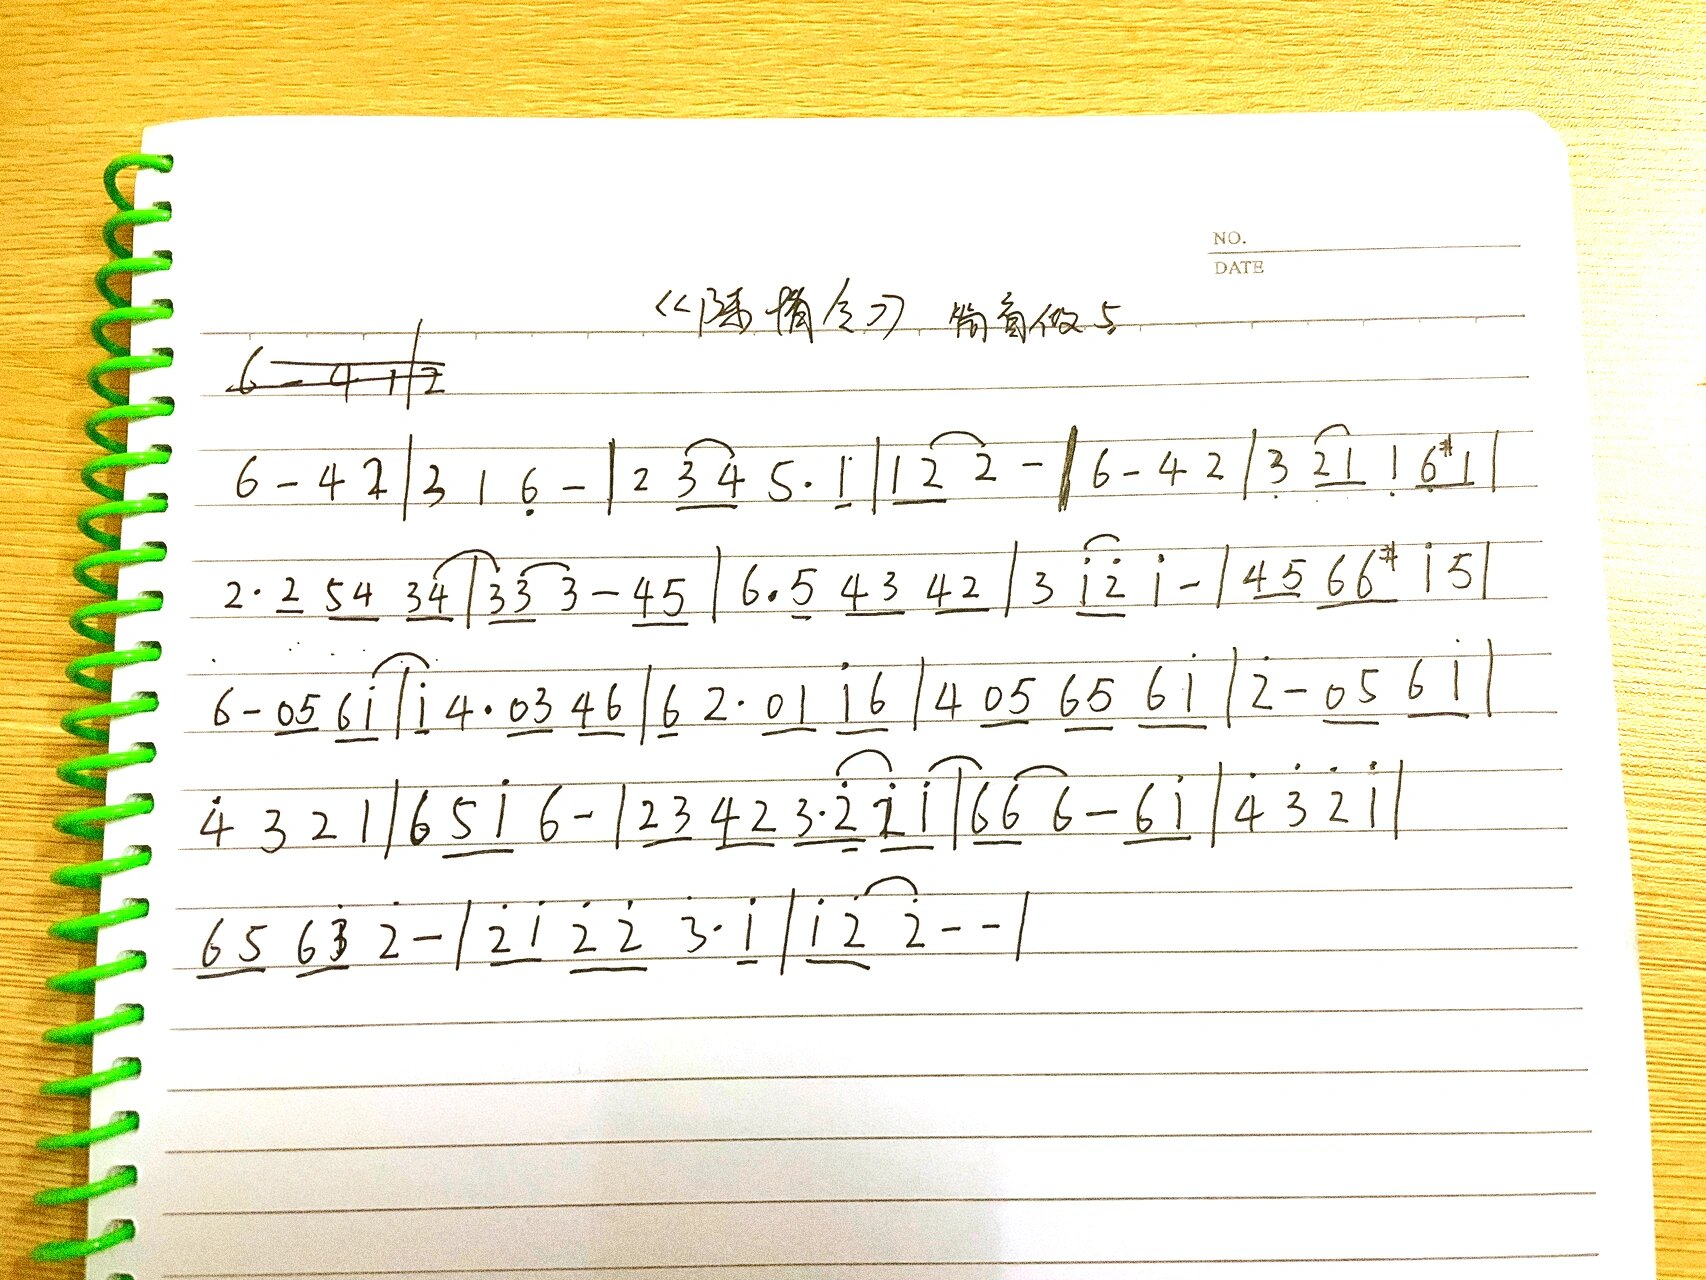 NO.
DATE
《陈情令》 筒音做5
6 - 4 1 | 2
6 - 4 2 | 3 1 6̣ - | 2 3 4 5 · 1̇ | 1 2 2 - | 6 - 4 2 | 3̣ 2 1 1̣ 6̣ #1 |
2 · 2 5 4 3 4 | 3 3 3 - 4 5 | 6 · 5 4 3 4 2 | 3 1̇ 2̇ 1̇ - | 4 5 6 6 # 1̇ 5 |
6 - 0 5 6 1̇ | 1̇ 4 · 0 3 4 6 | 6 2 · 0 1 1̇ 6 | 4 0 5 6 5 6 1̇ | 2̇ - 0 5 6 1̇ |
4̇ 3 2 1 | 6 5 1̇ 6 - | 2 3 4 2 3 · 2̇ 2̇ 1̇ | 6 6 6 - 6 1̇ | 4̇ 3̇ 2̇ 1̇ |
6 5 6 3̇ 2̇ - | 2̇ 1̇ 2̇ 2̇ 3̇ · 1̇ | 1̇ 2̇ 2̇ - - |